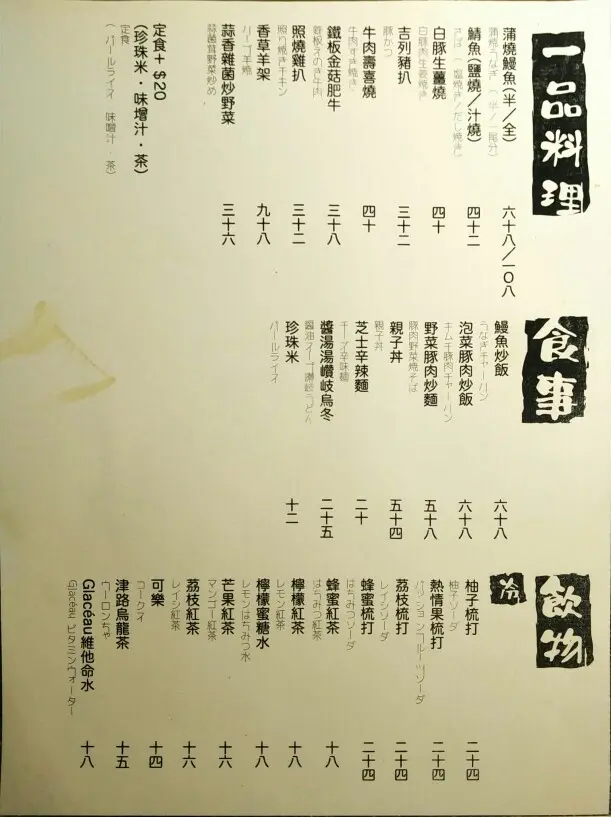 一品料理
蒲燒鰻魚(半/全)
蒲焼うなぎ(半/一尾分)
六十八/一0八
鯖魚(鹽燒/汁燒)
さば(塩焼き/だし焼き)
四十二
白豚生薑燒
白豚肉生姜焼き
四十
吉列豬扒
豚かつ
三十二
牛肉壽喜燒
牛肉すき焼き
四十
鐵板金菇肥牛
鉄板えのき牛肉
三十八
照燒雞扒
照り焼きチキン
三十二
香草羊架
ハーブ羊焼
九十八
蒜香雜菌炒野菜
蒜菌茸野菜炒め
三十六
定食+ $20
(珍珠米・味增汁・茶)
定食
(パールライス 味噌汁・茶)
食事
鰻魚炒飯
うなぎチャーハン
六十八
泡菜豚肉炒飯
キムチ豚肉チャーハン
六十八
野菜豚肉炒麵
豚肉野菜焼そば
五十八
親子丼
親子丼
五十四
芝士辛辣麵
チーズ辛味麺
二十
醬湯湯讚岐烏冬
醤油スープ讃岐うどん
二十五
珍珠米
パールライス
十二
飲物
冷
柚子梳打
柚子ソーダ
二十四
熱情果梳打
パッションフルーツソーダ
二十四
荔枝梳打
レイシソーダ
二十四
蜂蜜梳打
はちみつソーダ
二十四
蜂蜜紅茶
はちみつ紅茶
十八
檸檬紅茶
レモン紅茶
十八
檸檬蜜糖水
レモンはちみつ水
十八
芒果紅茶
マンゴー紅茶
十六
荔枝紅茶
レイシ紅茶
十六
可樂
コークス
十四
津路烏龍茶
ウーロンちゃ
十五
Glacéau維他命水
Glacéau ビタミンウォーター
十八